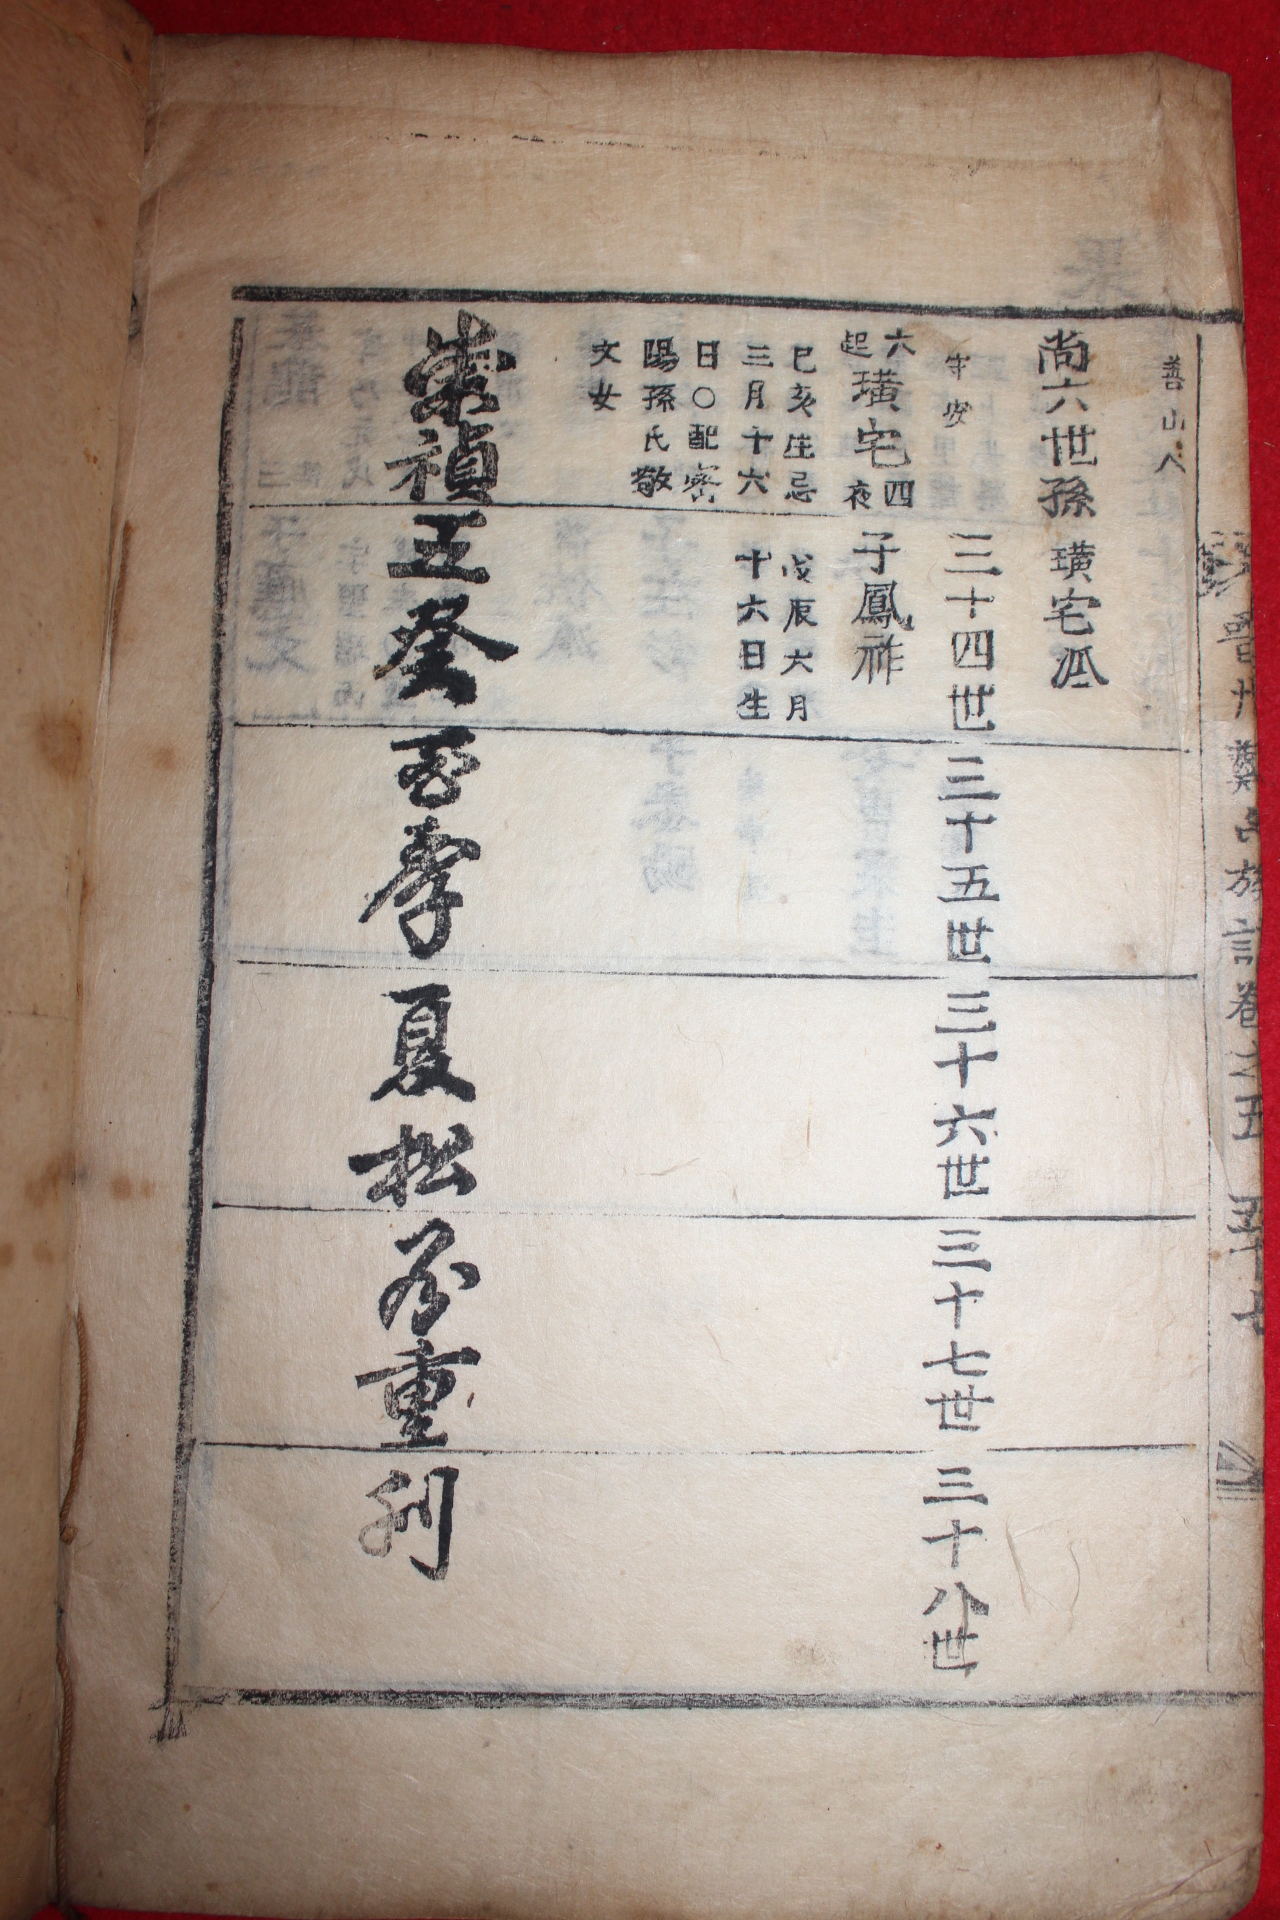 晋州鄭氏族譜卷之五 五十七
善山人
尚六世孫 璜宅派
宇安
三十四世
三十五世
三十六世
三十七世
三十八世
六
起
璜宅
四
夜
己亥生忌
三月十六
日○配密
陽孫氏敬
文女
子鳳祚
戊辰六月
十六日生
崇禎五癸
孟夏松
重刊